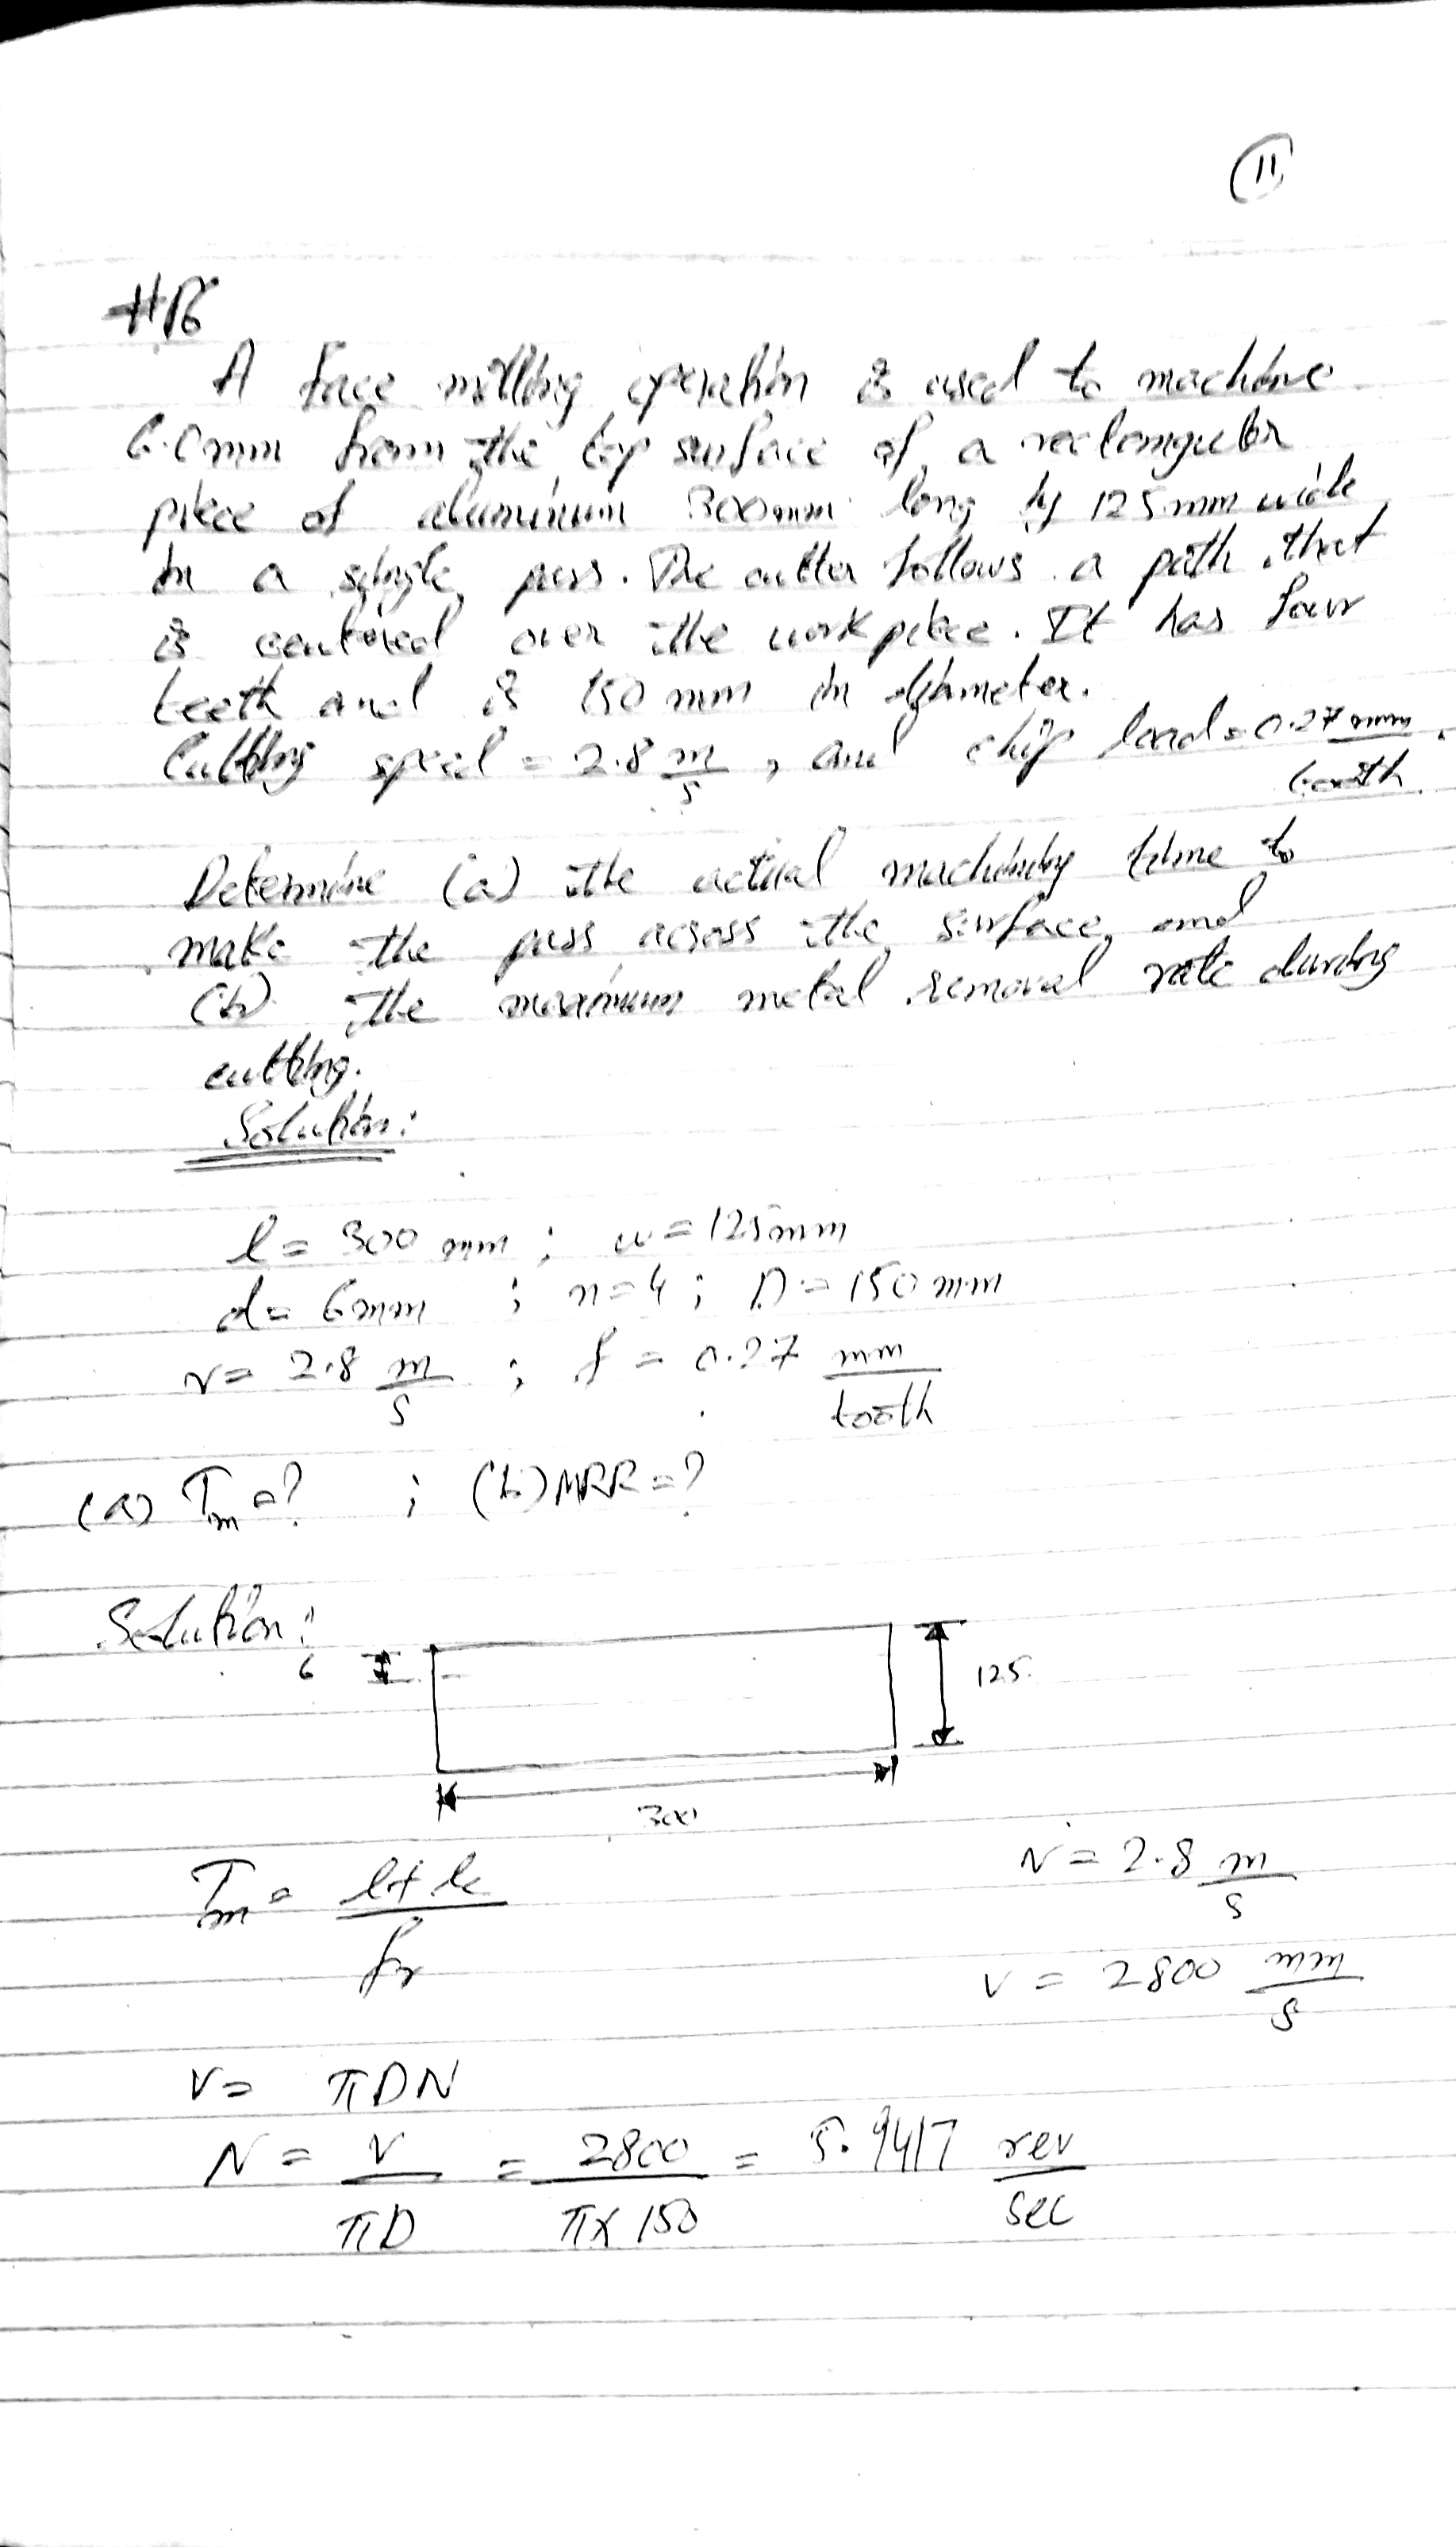 11
#16
A face milling operation is used to machine
6.0mm from the top surface of a rectangular
piece of aluminum 300mm long by 125mm wide
in a single pass. The cutter follows a path that
is centered over the workpiece. It has four
teeth and is 150 mm in diameter.
Cutting speed = 2.8 m/s, and chip load = 0.27 mm/tooth.
Determine (a) the actual machining time to
make the pass across the surface, and
(b) the maximum metal removal rate during
cutting.
Solution:
l = 300 mm ; w = 125mm
d = 6mm ; n = 4 ; D = 150mm
v = 2.8 m/s ; f = 0.27 mm/tooth
(a) Tm = ? ; (b) MRR = ?
Solution:
6
125
300
Tm = l + le / fr
v = 2.8 m/s
v = 2800 mm/s
v = πDN
N = v/πD = 2800/π×150 = 5.9417 rev/sec